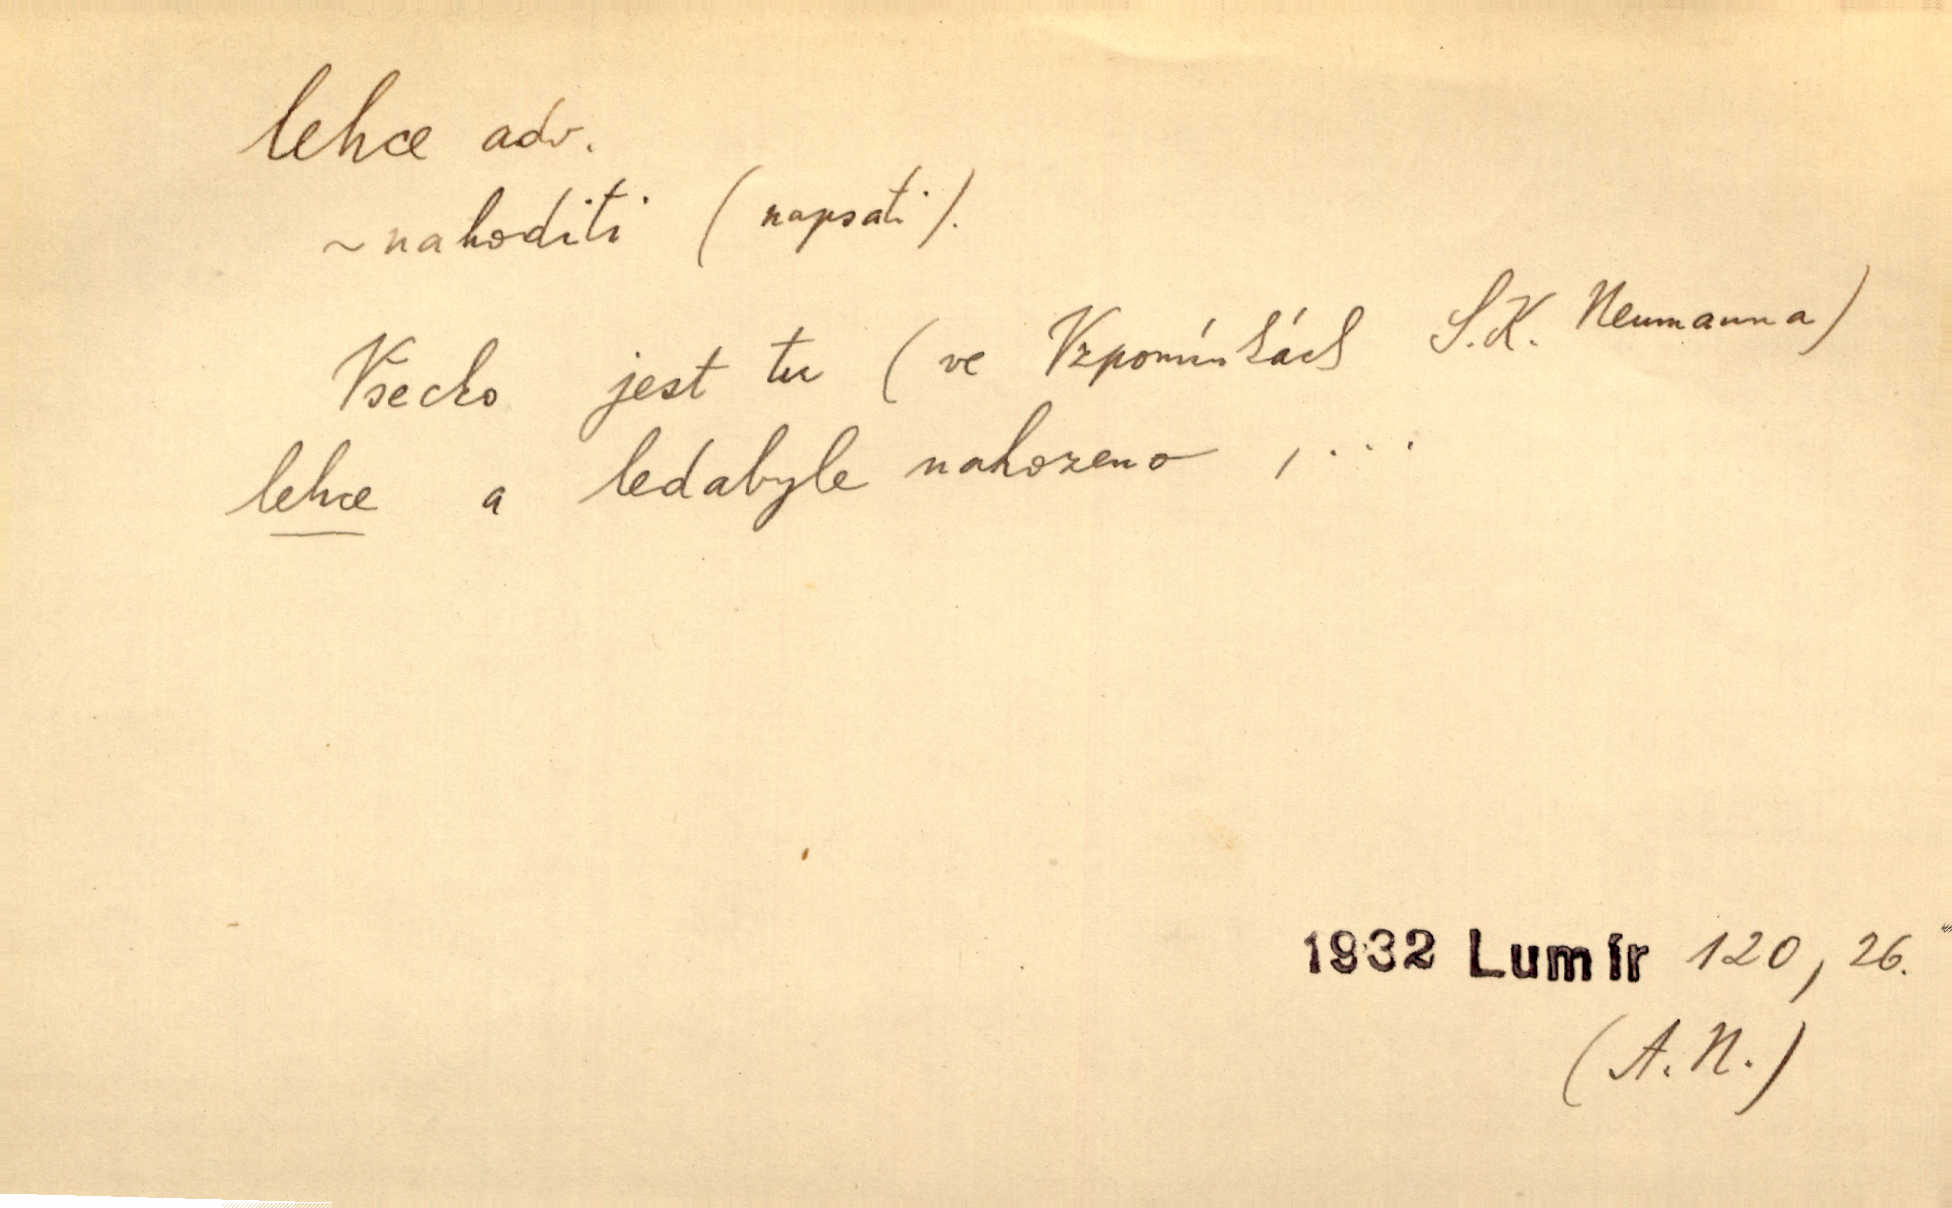 lehce adv.
~ nahoditi (napsati).
Vsecko jest tu (ve Vzpomínkách S.K. Neumanna)
lehce a ledabyle nahozeno, ...
1932 Lumír 120, 26.
(A.N.)